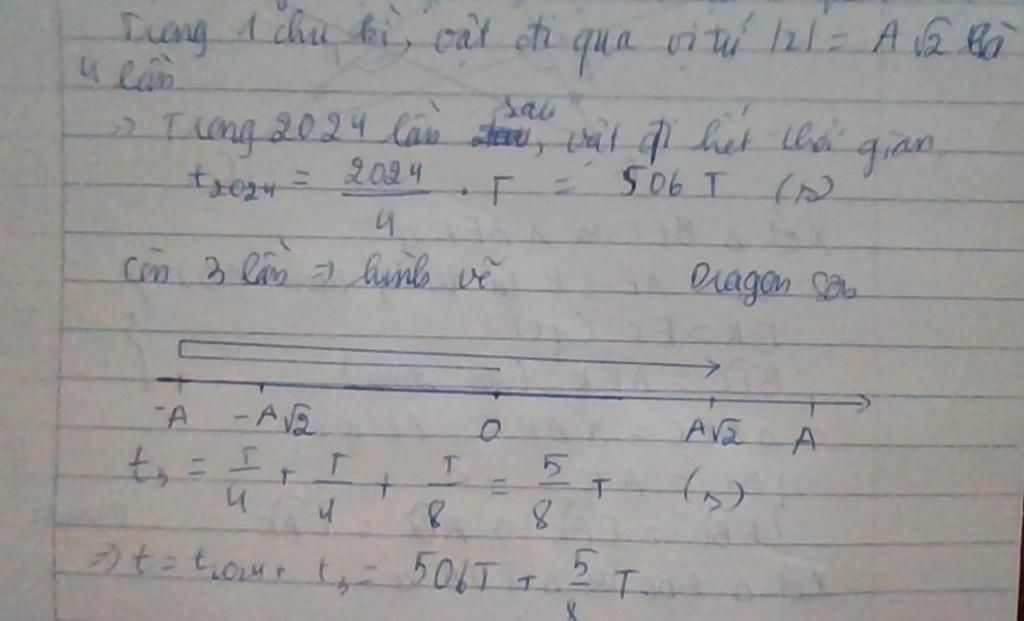 Trong 1 chu kì, vật đi qua vị trí |x| = A√2 là
4 lần
=> Trong 2024 lần sau, vật đi hết thời gian
t₂₀₂₄ = 2024/4 . T = 506 T (s)
Còn 3 lần => hình vẽ Dragon Son
-A -A√2 O A√2 A
t₃ = T/4 + T/4 + T/8 = 5/8 T (s)
=> t = t₂₀₂₄ + t₃ = 506T + 5/8 T